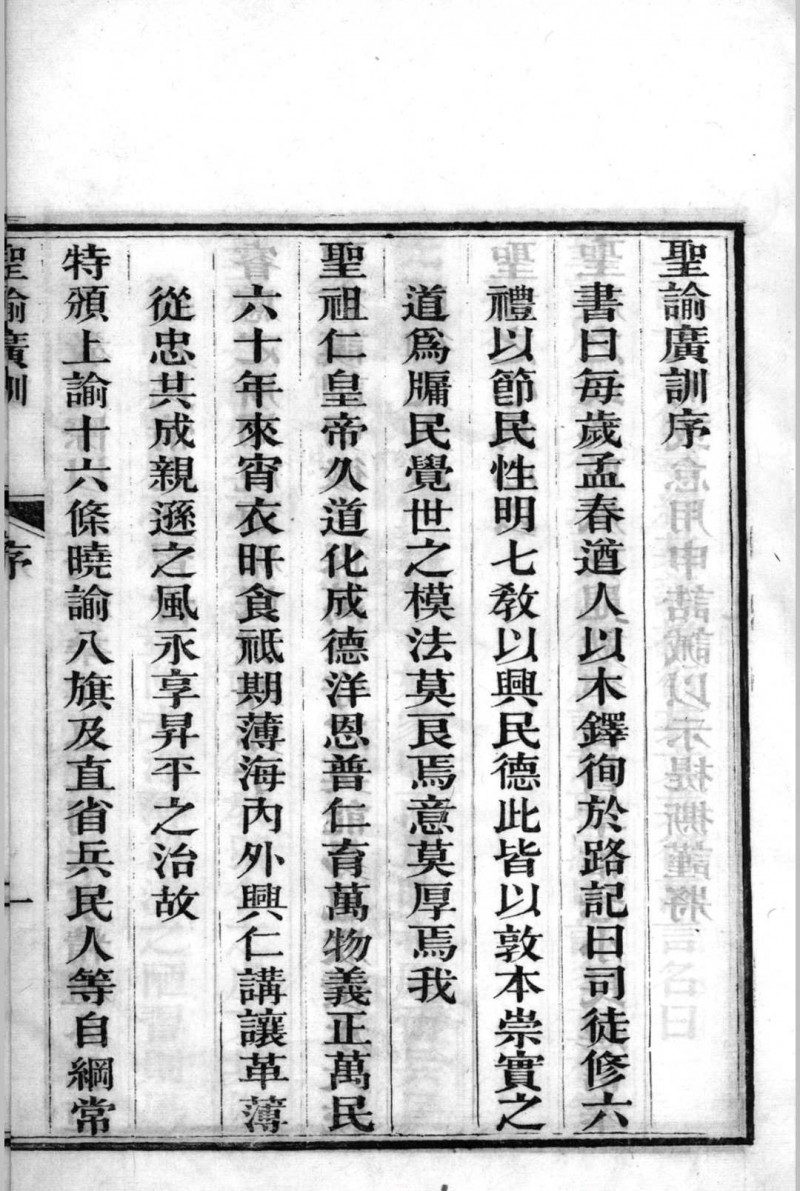 聖諭廣訓序
書曰每歲孟春遒人以木鐸徇於路記曰司徒修六
禮以節民性明七敎以興民德此皆以敦本崇實之
道爲牖民覺世之模法莫良焉意莫厚焉我
聖祖仁皇帝久道化成德洋恩普仁育萬物義正萬民
六十年來宵衣旰食祗期薄海內外興仁講讓革薄
從忠共成親遜之風永享昇平之治故
特頒上諭十六條曉諭八旗及直省兵民人等自綱常
聖諭廣訓
序
一